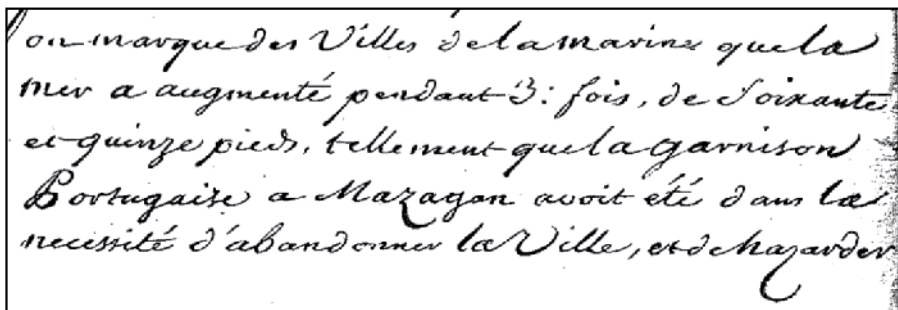 on marque des Villes de la marine que la
mer a augmenté pendant 3: fois, de Soixante
et quinze pieds, tellement que la garnison
Portugaise a Mazagan avoit été dans la
necessité d'abandonner la Ville, et de hazarder